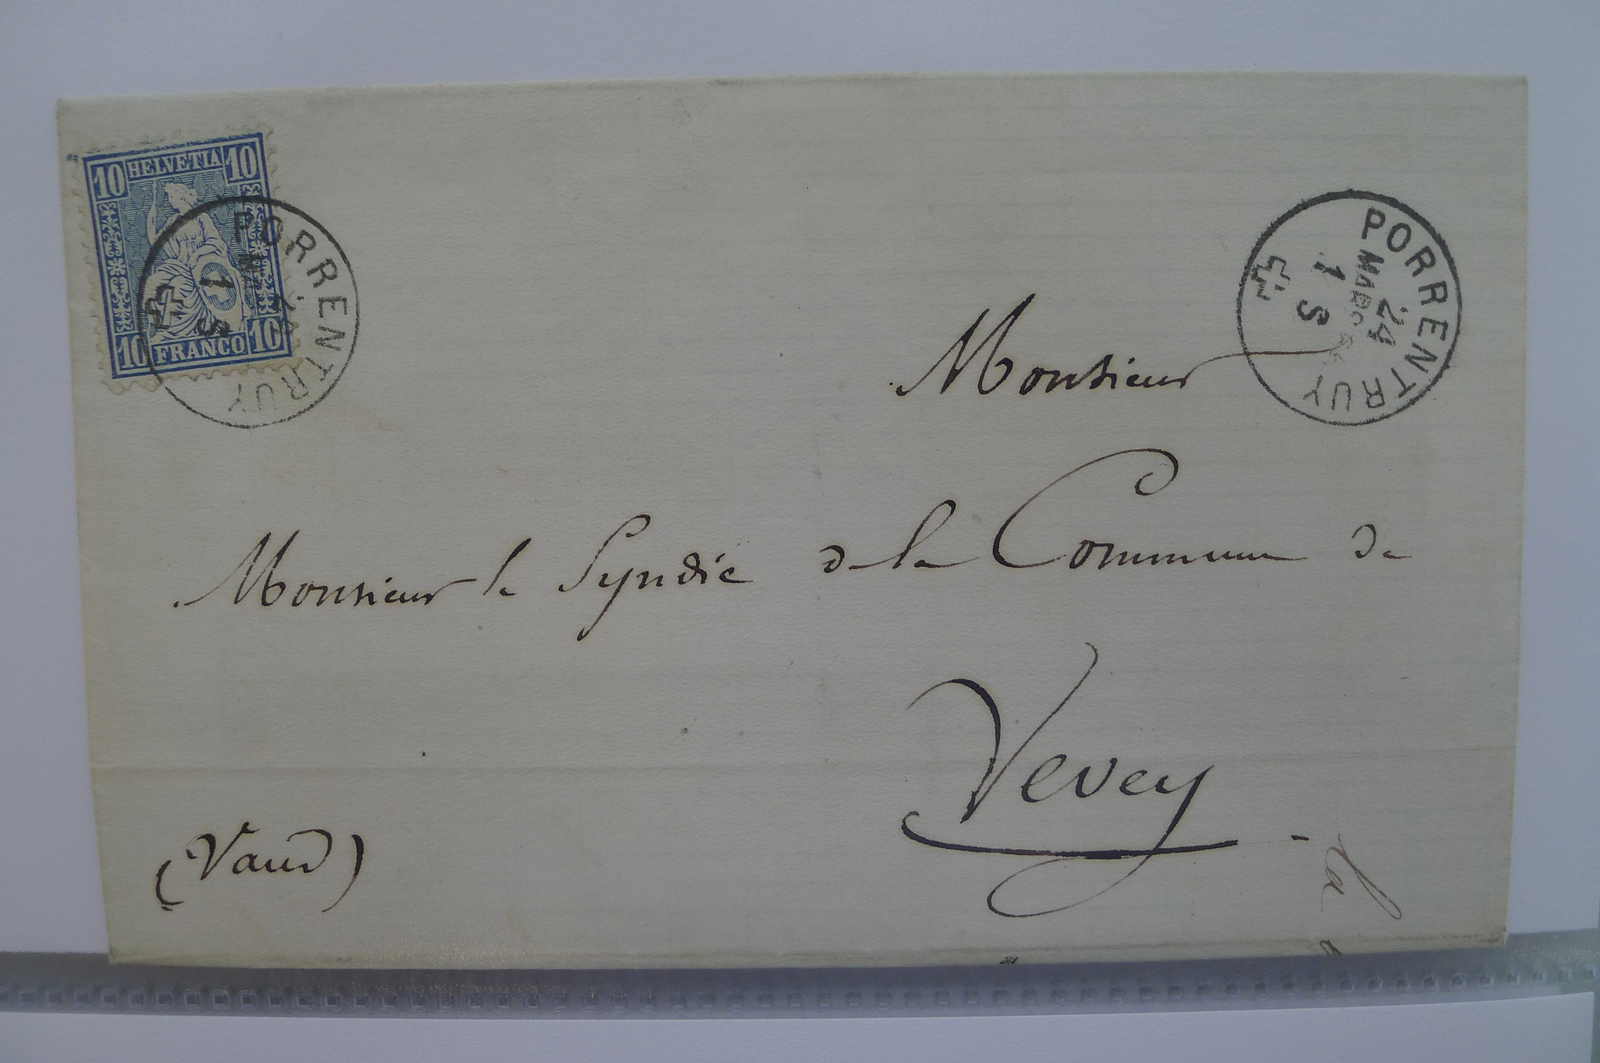 10 HELVETIA 10
10 FRANCO 10
PORRENTRUY
1 S
PORRENTRUY
24
MARS
1 S
Monsieur
Monsieur le Syndic de la Commune de
Vevey
(Vaud)
la